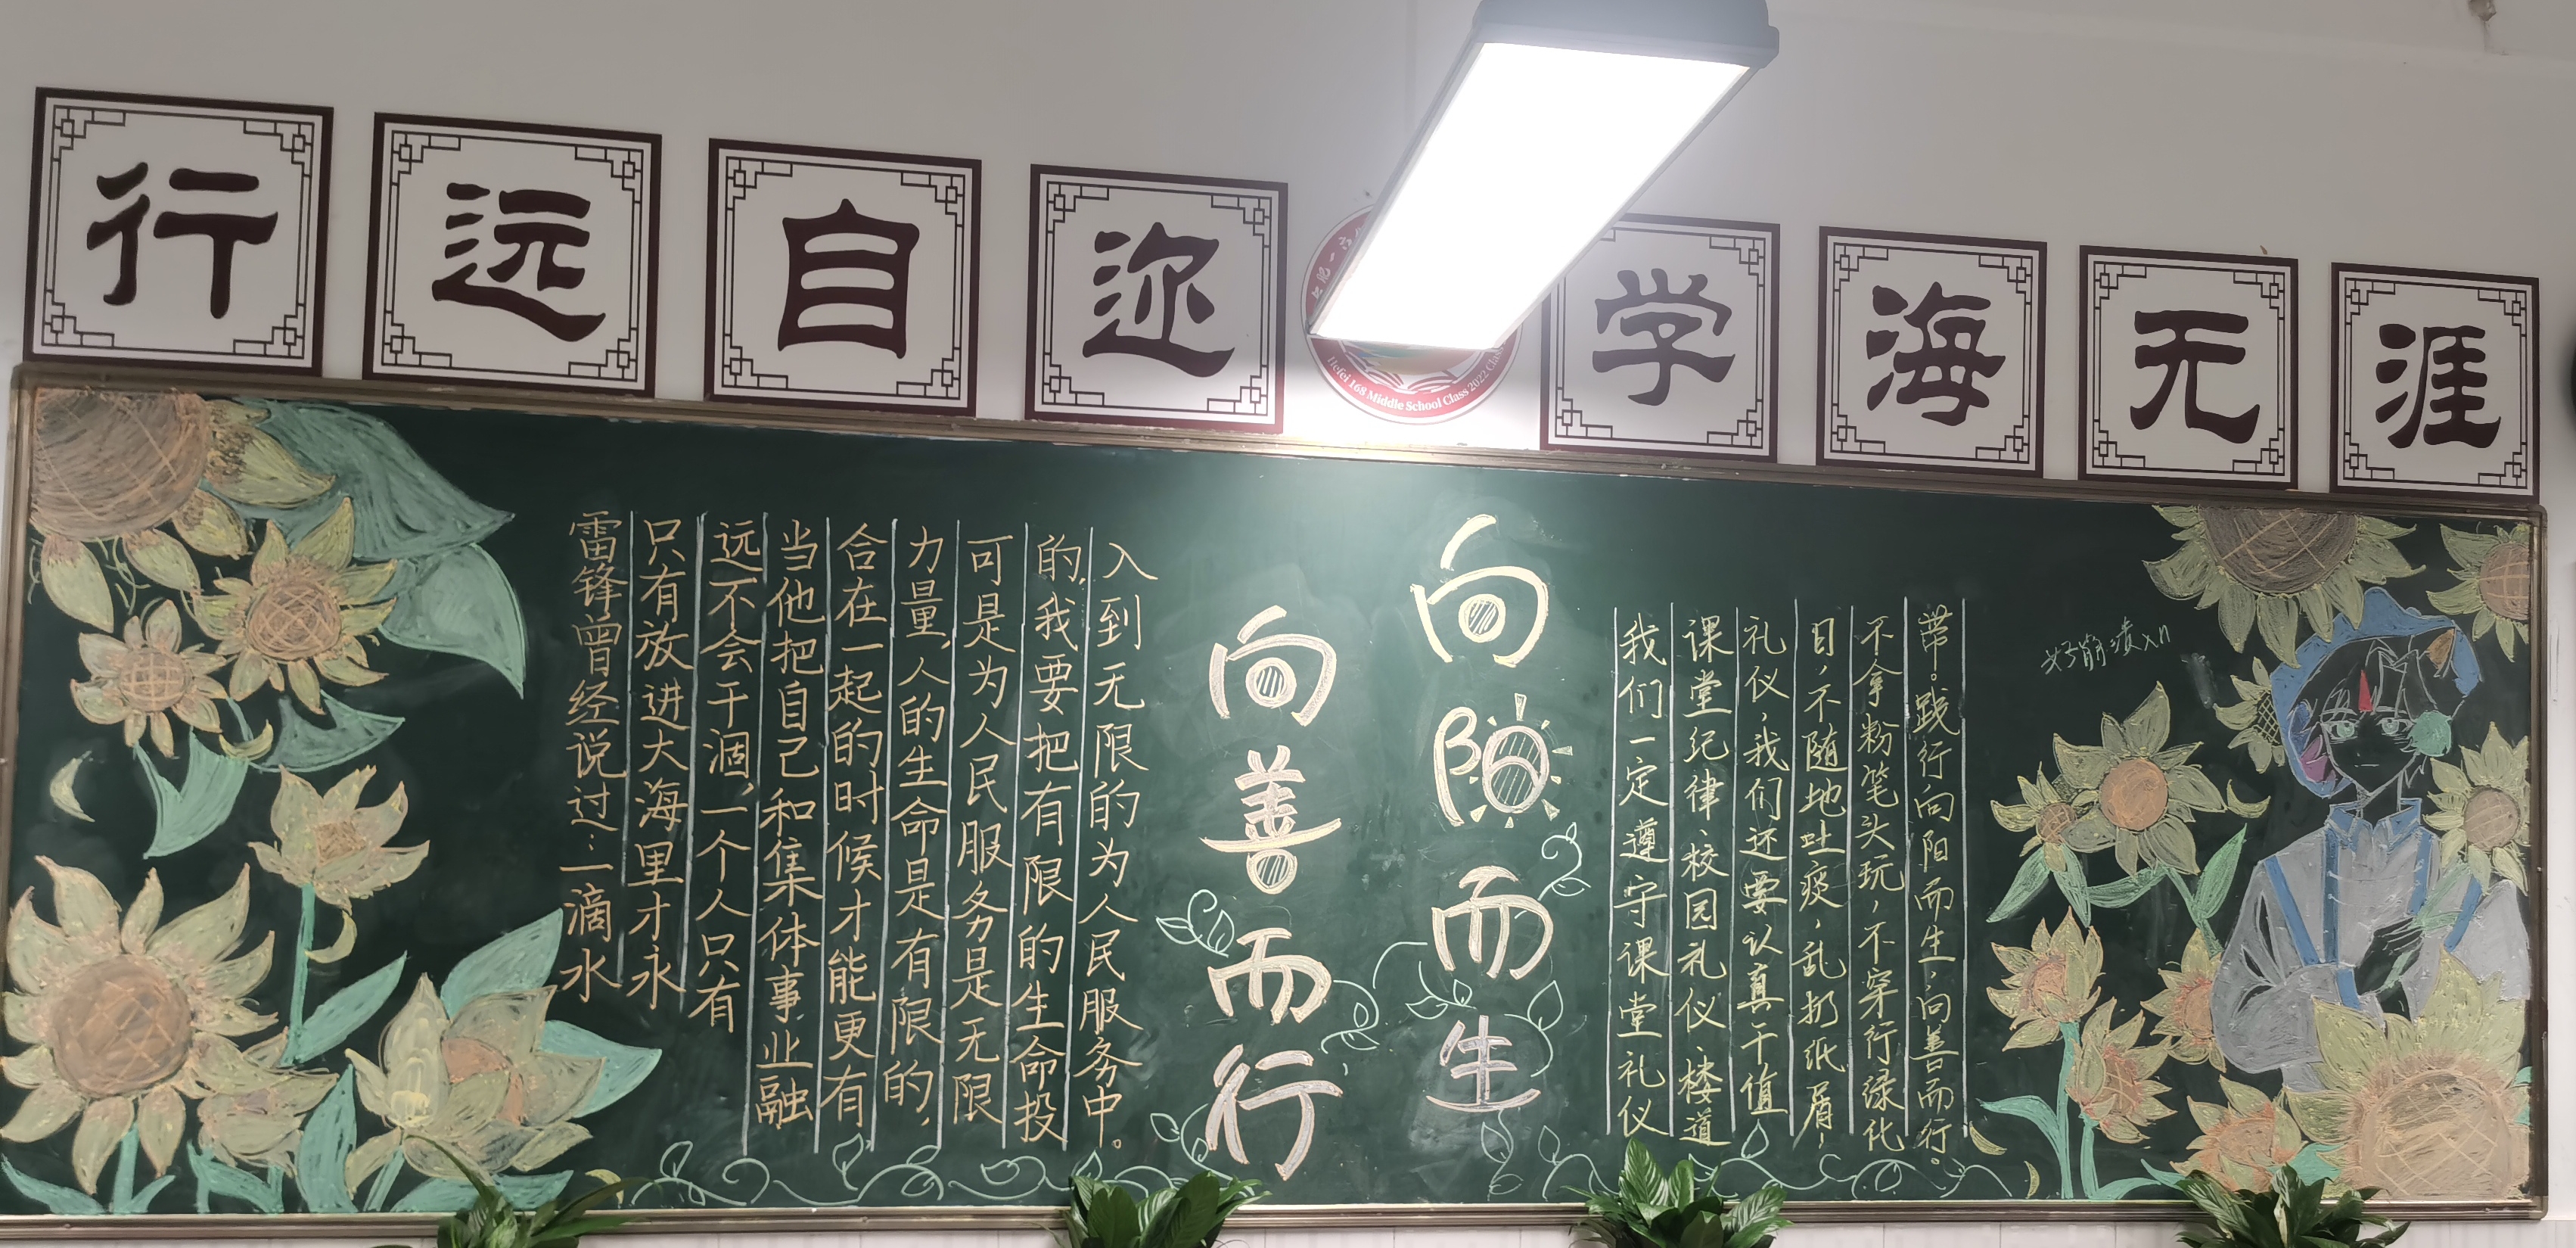 行远自迩
学海无涯
Hefei 168 Middle School Class 2022
雷锋曾经说过：一滴水
只有放进大海里才永
远不会干涸，一个人只有
当他把自己和集体事业融
合在一起的时候才能更有
力量，人的生命是有限的，
可是为人民服务是无限
的，我要把有限的生命投
入到无限的为人民服务中。
向阳而生
向善而行
我们一定遵守课堂礼仪
课堂纪律、校园礼仪、楼道
礼仪，我们还要认真干值
日，不随地吐痰，乱扔纸屑，
不拿粉笔头玩，不穿行绿化
带。践行向阳而生，向善而行。